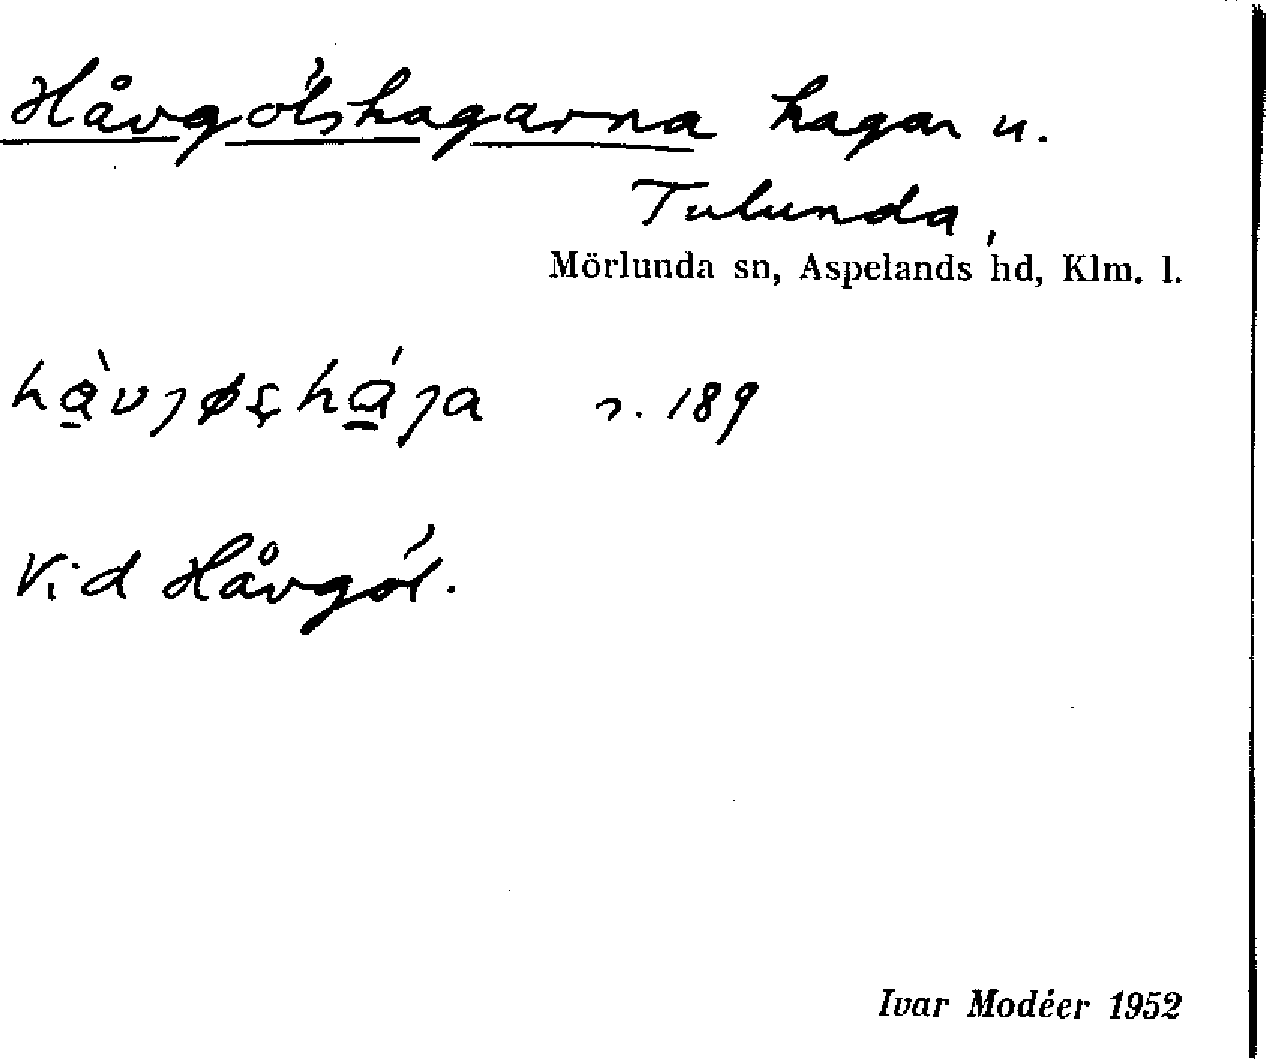 Håvgölshagarna hagar u.
Tulunda,
Mörlunda sn, Aspelands hd, Klm. l.
s. 189
Vid Håvgöl.
Ivar Modéer 1952